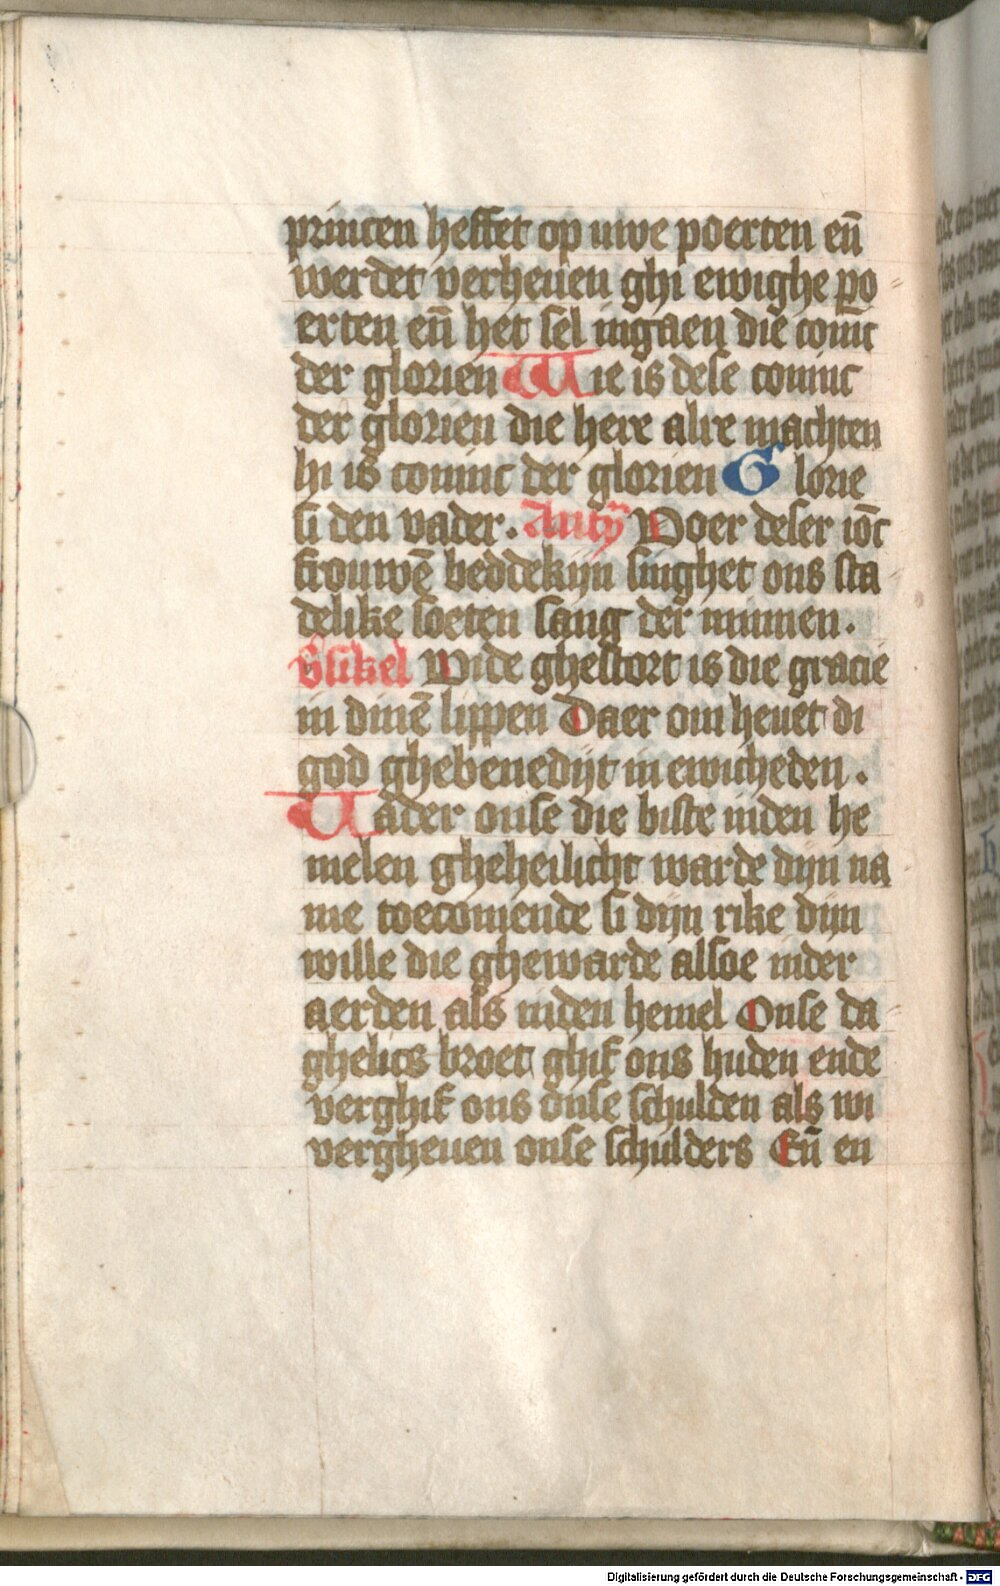 princen heffet op uwe poerten en̄
werdet verheuen ghi ewighe po
erten en̄ het sel ingaen die coninc
der glorien Wie is dese coninc
der glorien die here alre machten
hi is coninc der glorien Glorie
si den vader. Antȳ Voer deser ionc
frouwē beddekijn singhet ons sta
delike soeten sang der minnen.
Vsikel Wide ghestort is die gracie
in dinē lippen Daer om heuet di
god ghebenedijt in ewicheden.
Vader onse die biste inden he
melen gheheilicht warde dijn na
me toecomende si dijn rike dijn
wille die ghewarde alsoe inder
aerden als inden hemel Onse da
ghelics broet ghif ons huden ende
verghif ons onse schulden als wi
vergheuen onse schulders En̄ en
Digitalisierung gefördert durch die Deutsche Forschungsgemeinschaft - DFG